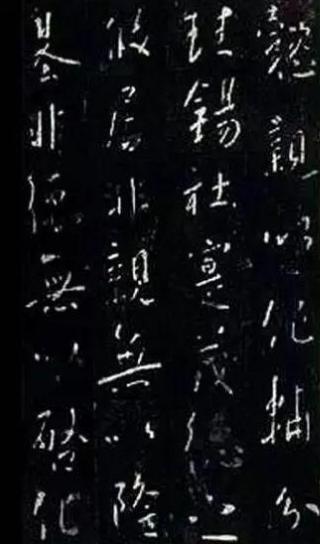 懿親以作輔分
珪錫社寔茂德之
攸居非親無以隆
基非德無以啓化